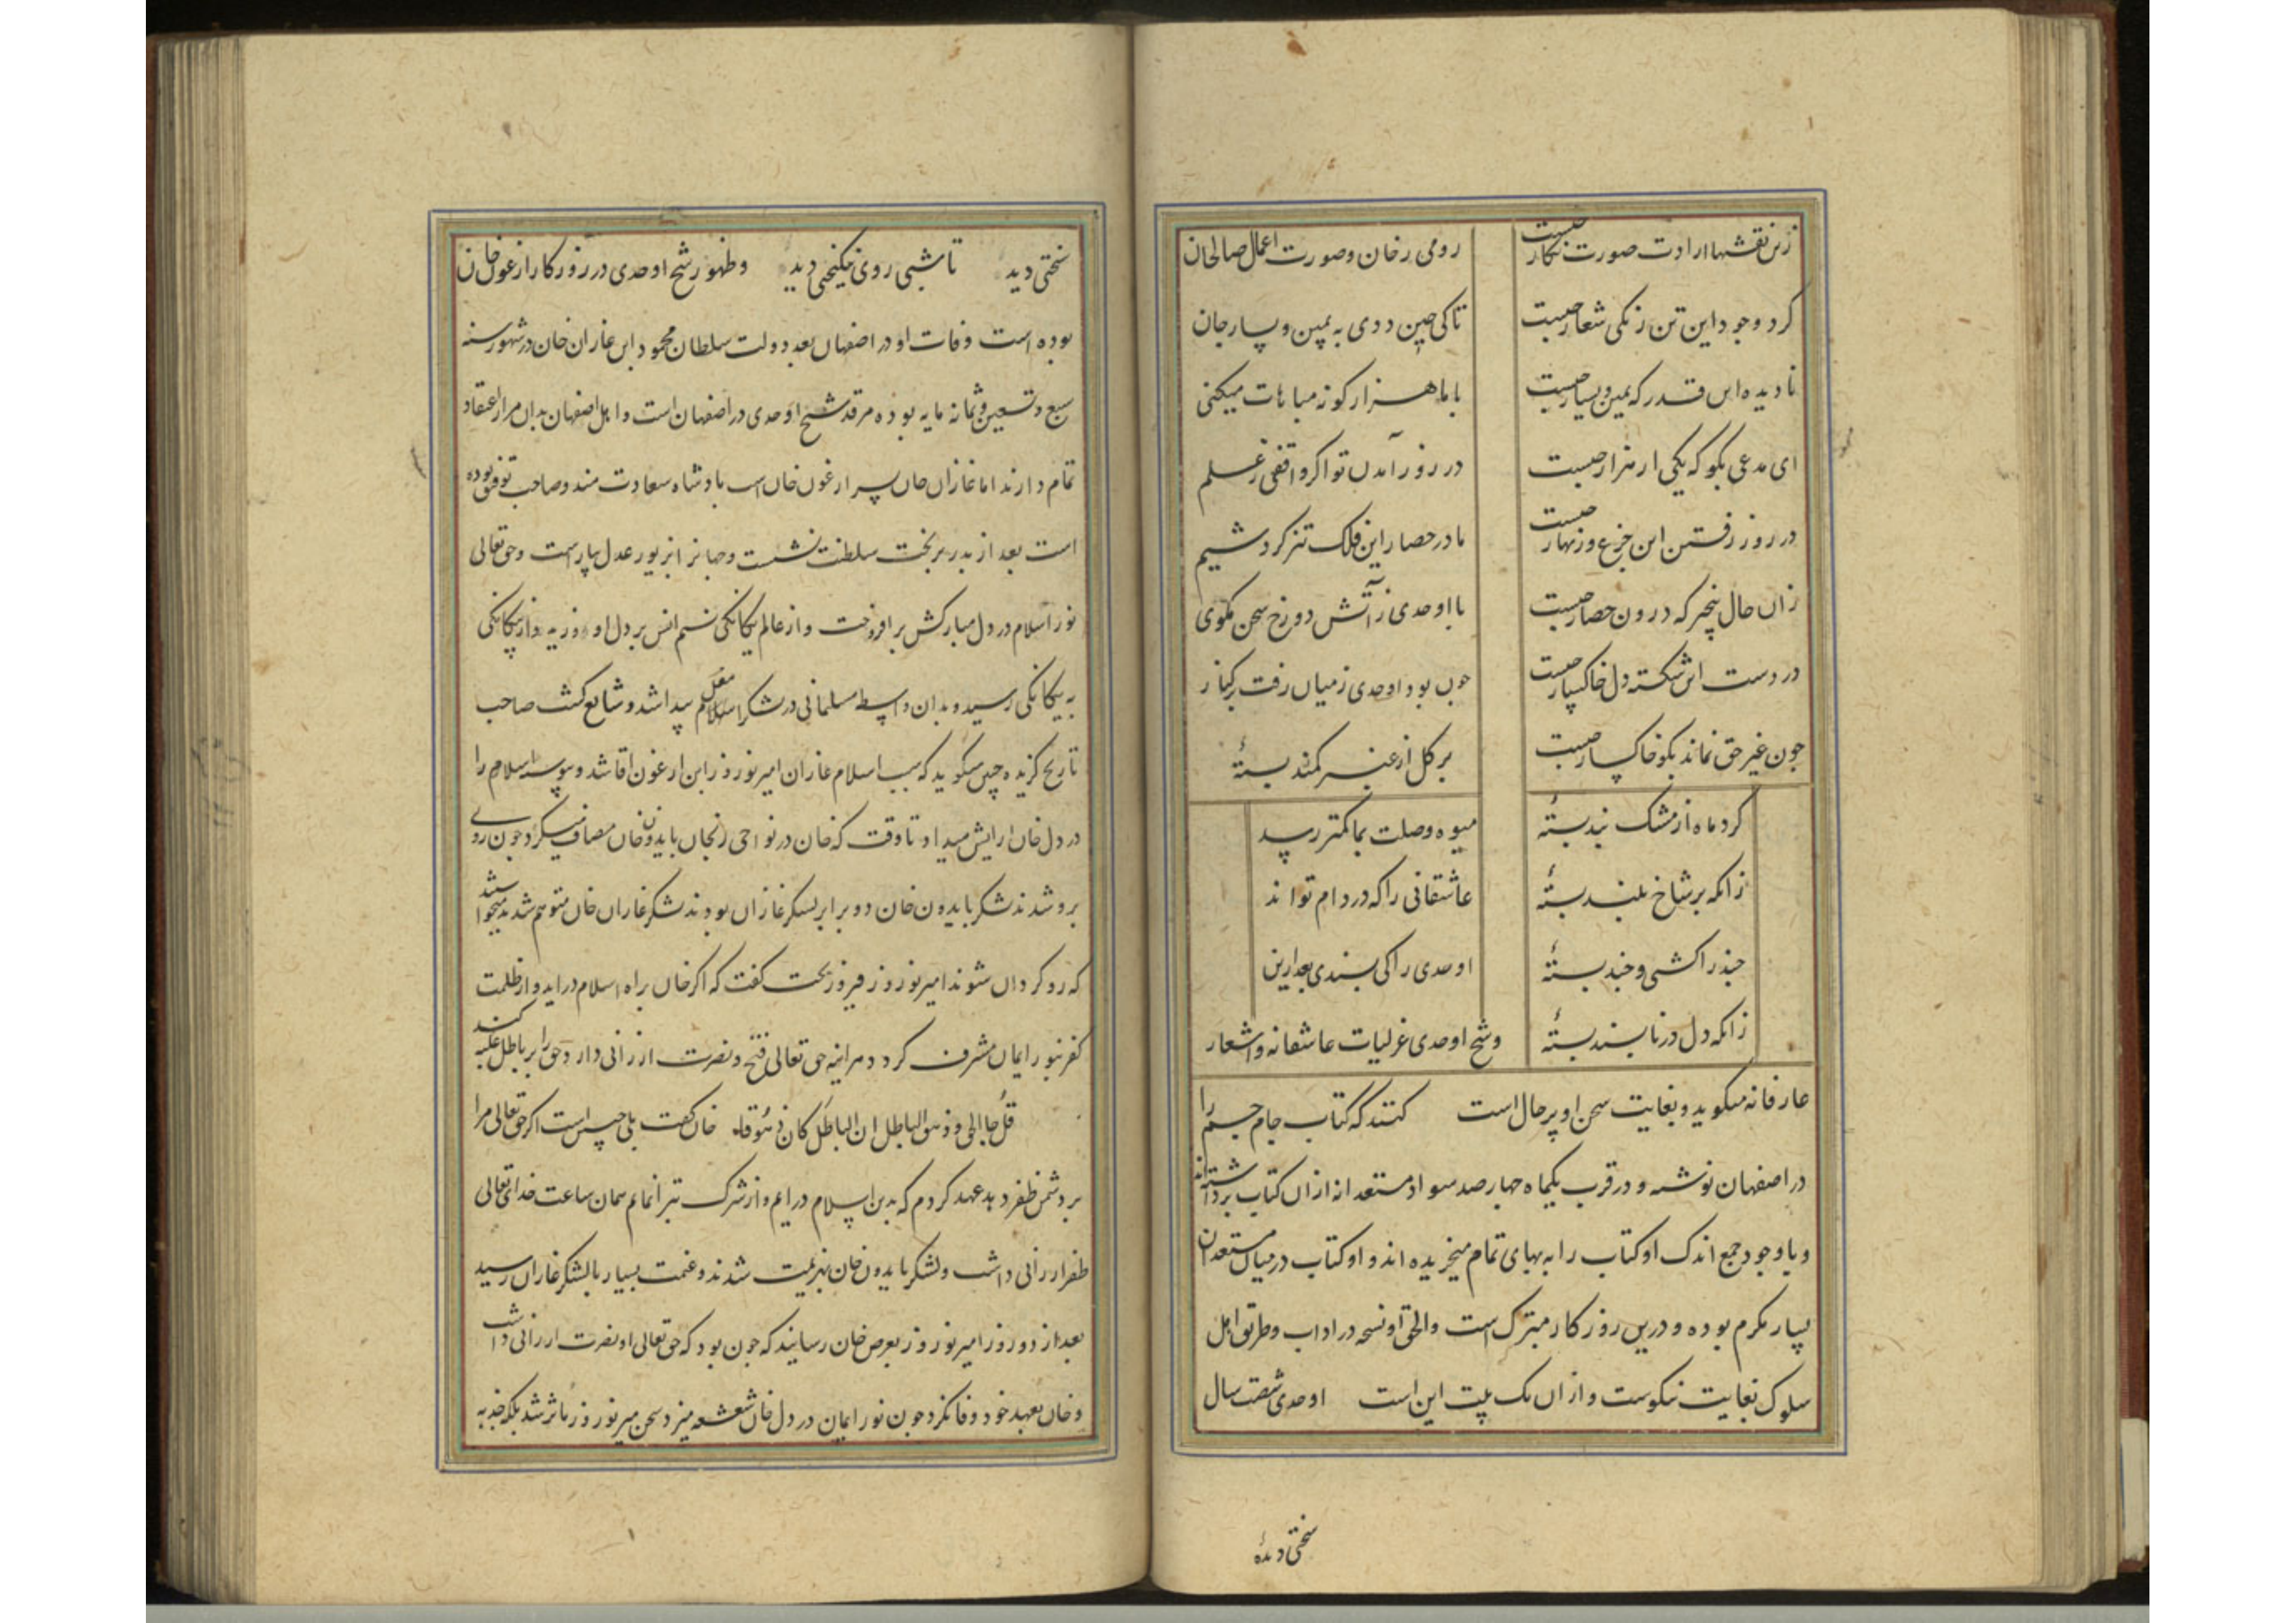 زین نقشها ارادت صورت نگار چیست
رومی رخان وصورت اعمال صالحان
کرد وجود این تن زنکی شعار چیست
تا کی چین ددی به یمین و یسار جان
نادیده این قدر که یمین و یسار چیست
با ما هزار کونه مباهات میکنی
ای مدعی بکو که یکی از هزار چیست
در روز آمدن تو اکر واقفی ز علم
در روز رفتن این جزع و زنهار چیست
ما در حصار این فلک تیز کردشیم
زان حال بیخبر که درون حصار چیست
با اوحدی ز آتش دوزخ سخن مکوی
در دست این شکسته دل خاکسار چیست
چون بود اوحدی ز میان رفت بر کنار
چون غیر حق نماند بکو خاکسار چیست
بر کل از عنبر کمند بستهٔ
کرد ماه از مشک بند بستهٔ
میوه وصلت بما کمتر رسد
زانکه بر شاخ بلند بستهٔ
عاشقانی را که در دام تو اند
چند را کشتی و چند بستهٔ
اوحدی را کی پسندی بعد ازین
زانکه دل در ناپسند بستهٔ
وشیخ اوحدی غزلیات عاشقانه و اشعار
عارفانه میکوید و بغایت سخن او پر حال است کفتند که کتاب جام جم را
در اصفهان نوشته و در قرب یکماه چهار صد سواد مستعدانه از ان کتاب برداشته اند
و با وجود جمع اندک او کتاب را به بهای تمام میخریده اند و او کتاب در میان مستعدان
بسیار مکرم بوده و درین روزکار متبرک است والحق او نسخه در اداب و طریق اهل
سلوک بغایت نیکوست و از ان یک بیت این است اوحدی شصت سال
سختی دیدهٔ
سختی دید تا شبی روی نیکبختی دید وظهور شیخ اوحدی در روزکار ارغون خان
بوده است وفات او در اصفهان بعد دولت سلطان محمود ابن غازان خان در شهور سنه
سبع وتسعین وثمانه مایه بوده مرقد شیخ اوحدی در اصفهان است و اهل اصفهان بدان مزار اعتقاد
تمام دارند اما غازان خان پسر ارغون خان است پادشاه سعادت مند و صاحب توفیق بوده
است بعد از پدر بر تخت سلطنت نشست و جهانرا بزیور عدل بیاراست وحق تعالی
نور اسلام در دل مبارکش بر افروخت و از عالم یکانکی نسیم انس بر دل او وزید و از بیکانکی
به یکانکی رسید و بدان واسطه مسلمانی در لشکر اسلام مغل پیدا شد و شایع کشت صاحب
تاریخ کزیده چنین میکوید که سبب اسلام غازان امیر نوروز ابن ارغون اقا شد و پیوسته اسلام را
در دل خان ارایش میداد تا وقت که خان در نواحی زنجان با بایدون خان مصاف میکرد چون روی
برو شدند لشکر بایدون خان دو برابر لشکر غازان بودند لشکر غازان خان متوهم شدند میخواستند
که رو کردان شوند امیر نوروز فیروز بخت کفت که اکر خان براه اسلام در اید و از ظلمت
کفر بنور ایمان مشرف کردد هر اینه حق تعالی فتح و نصرت ارزانی دارد وحق را بر باطل غلبه کند
قل جا الحق و زهق الباطل ان الباطل کان زهوقا خان کفت بلی چنین است اکر حق تعالی مرا
بر دشمن ظفر دهد عهد کردم که بدین اسلام در ایم و از شرک تبرا نمایم همان ساعت خدای تعالی
ظفر ارزانی داشت ولشکر بایدون خان بهزیمت شدند وغنیمت بسیار بلشکر غازان رسید
بعد از دو روز امیر نوروز بعرض خان رسانید که چون بود که حق تعالی او نصرت ارزانی داشت
و خان بعهد خود وفا نکرد چون نور ایمان در دل خان شعشعه میزد سخن میر نوروز ماثر شد بلکه جذبه